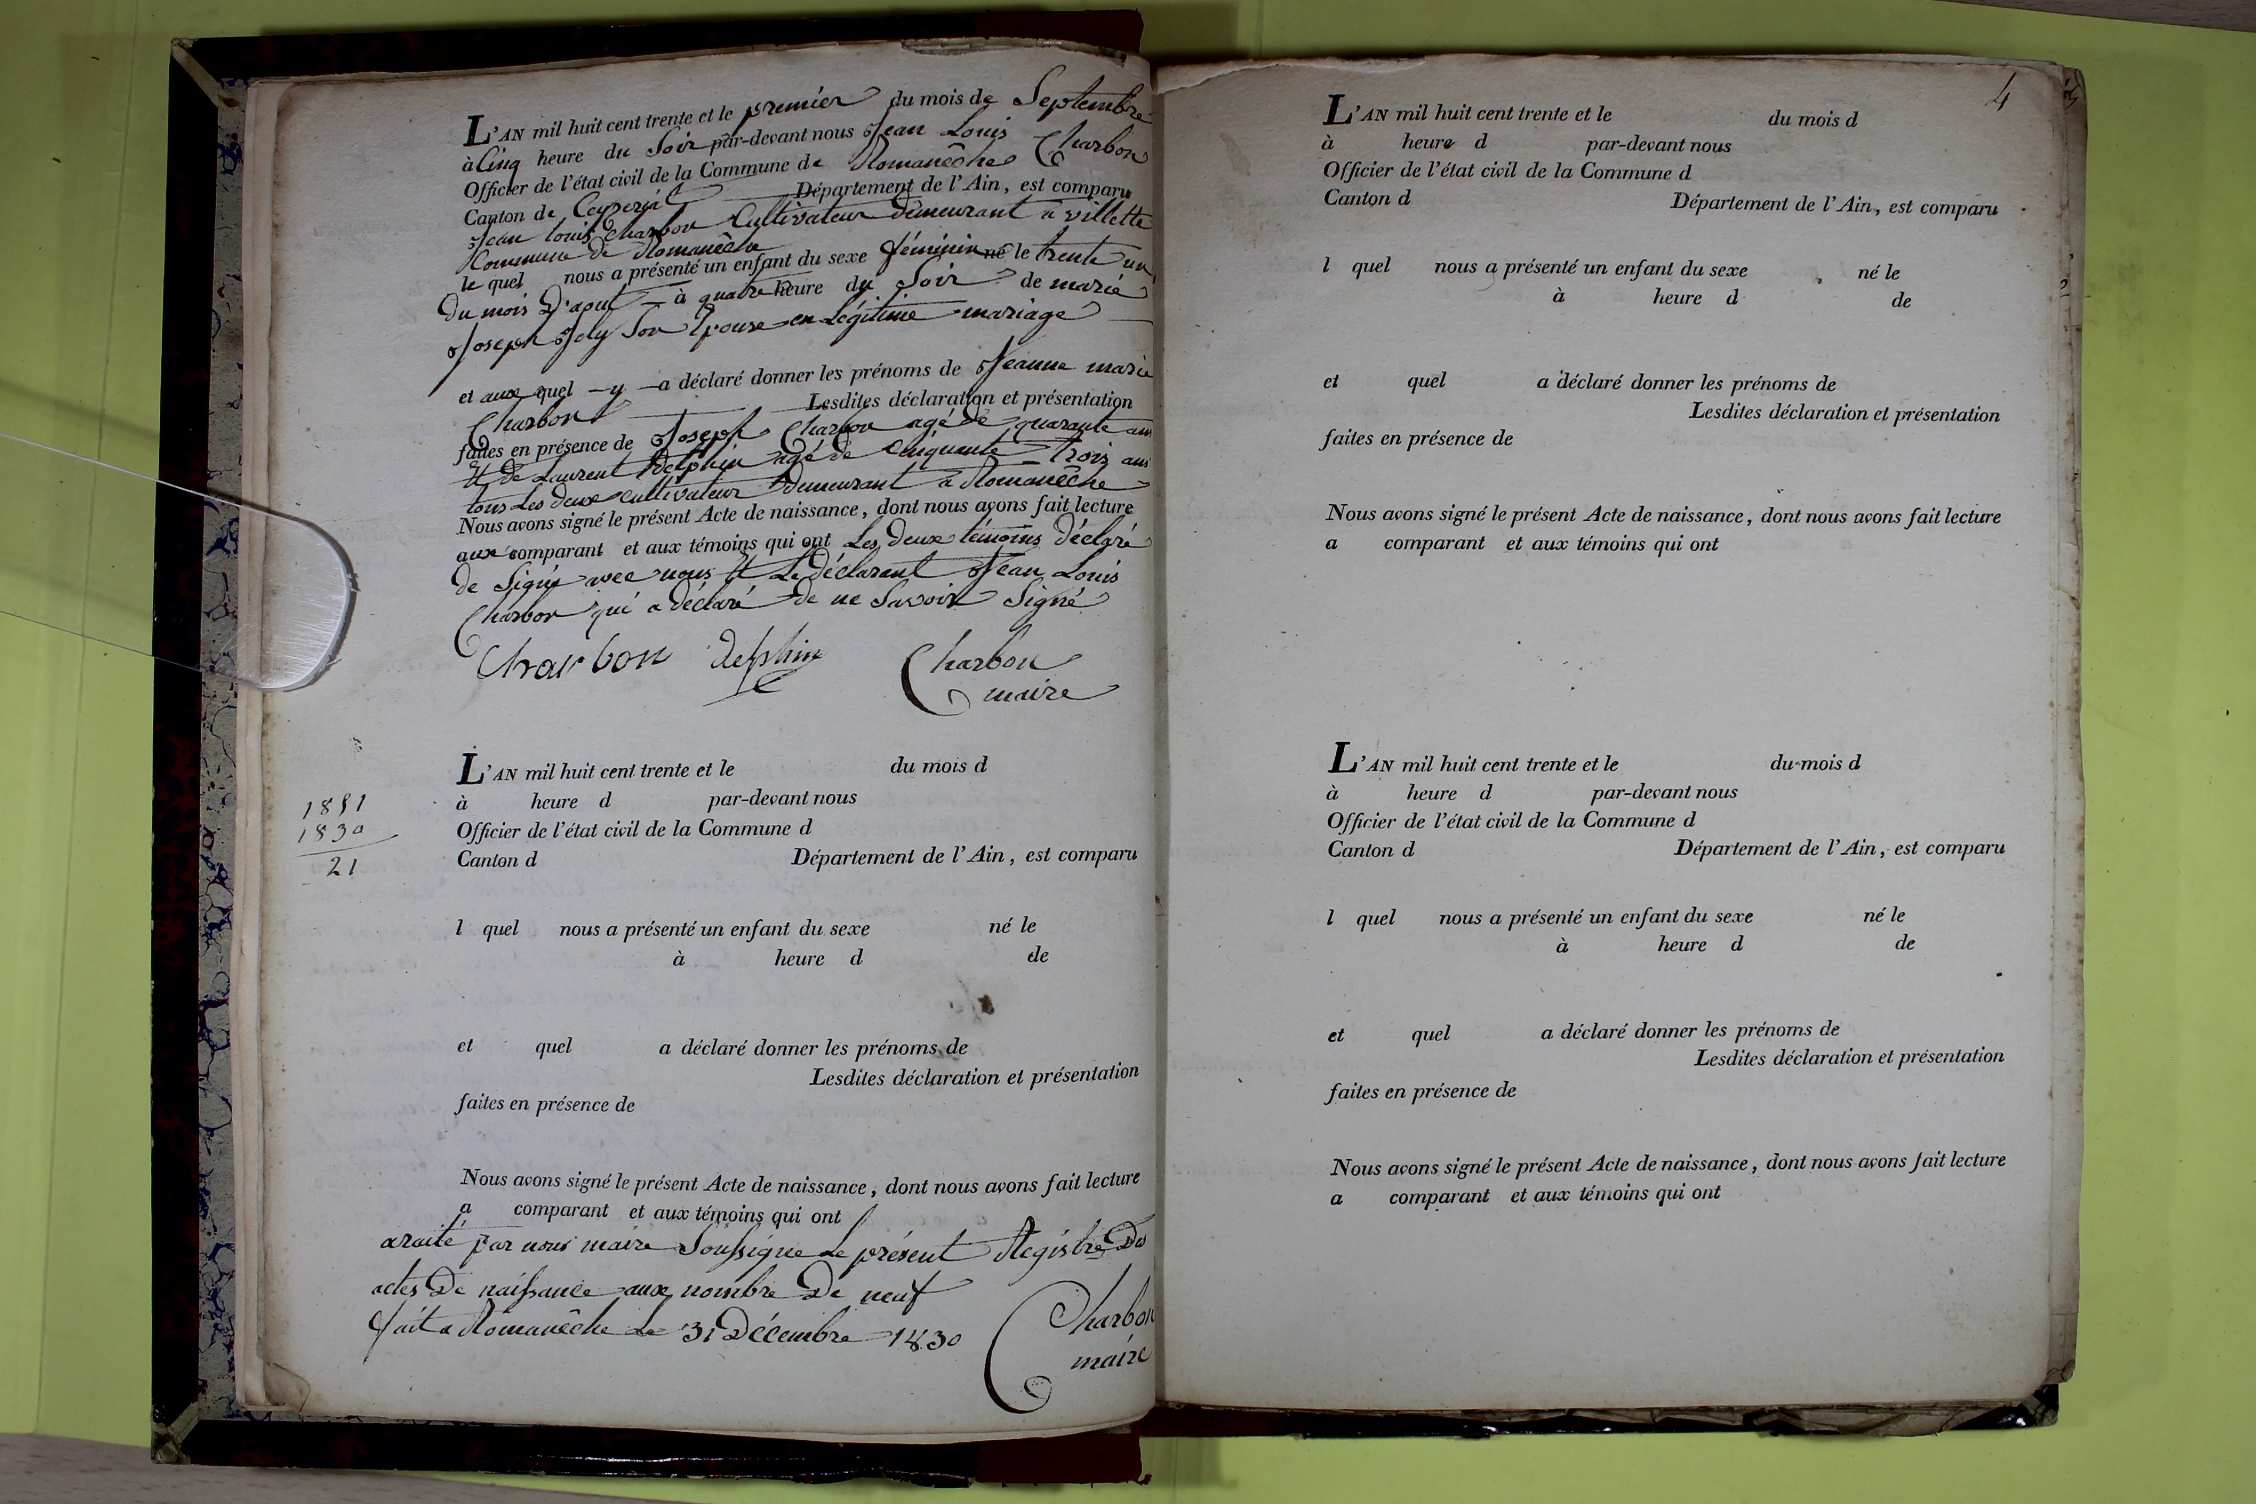 L'AN mil huit cent trente et le premier du mois de Septembre
à Cinq heure du Soir par-devant nous Jean Louis Charbon
Officier de l'état civil de la Commune de Romanêche
Canton de Ceyzeriat Département de l'Ain, est comparu
Jean louis Charbon Cultivateur demeurant a villette
Commune de Romanêche
le quel nous a présenté un enfant du sexe féminin né le trente un
du mois d'aout à quatre heure du Soir de marie
Joseph Joly Son Epouse en Légitime mariage
et aux quel y a déclaré donner les prénoms de Jeanne marie
Charbon Lesdites déclaration et présentation
faites en présence de Joseph Charbon agé de quarante ans
Et de Laurent Delphin agé de Cinquante trois ans
tous Les deux cultivateur Demeurant a Romanêche
Nous avons signé le présent Acte de naissance, dont nous avons fait lecture
aux comparant et aux témoins qui ont Les deux témoins déclaré
de Signé avec nous Et Le Déclarant Jean Louis
Charbon qui a déclaré de ne Savoir Signé
Charbon delphin Charbon
maire
L'AN mil huit cent trente et le du mois d
à heure d par-devant nous
Officier de l'état civil de la Commune d
Canton d Département de l'Ain, est comparu
l quel nous a présenté un enfant du sexe né le
à heure d de
et quel a déclaré donner les prénoms de
Lesdites déclaration et présentation
faites en présence de
Nous avons signé le présent Acte de naissance, dont nous avons fait lecture
a comparant et aux témoins qui ont
1851
1830
21
araité par nous maire Soussigne Le présent Registre Des
actes De naissance aux nombre De neuf
fait a Romanêche Le 31 Décembre 1830
Charbon
maire
4
L'AN mil huit cent trente et le du mois d
à heure d par-devant nous
Officier de l'état civil de la Commune d
Canton d Département de l'Ain, est comparu
l quel nous a présenté un enfant du sexe né le
à heure d de
et quel a déclaré donner les prénoms de
Lesdites déclaration et présentation
faites en présence de
Nous avons signé le présent Acte de naissance, dont nous avons fait lecture
a comparant et aux témoins qui ont
L'AN mil huit cent trente et le du mois d
à heure d par-devant nous
Officier de l'état civil de la Commune d
Canton d Département de l'Ain, est comparu
l quel nous a présenté un enfant du sexe né le
à heure d de
et quel a déclaré donner les prénoms de
Lesdites déclaration et présentation
faites en présence de
Nous avons signé le présent Acte de naissance, dont nous avons fait lecture
a comparant et aux témoins qui ont